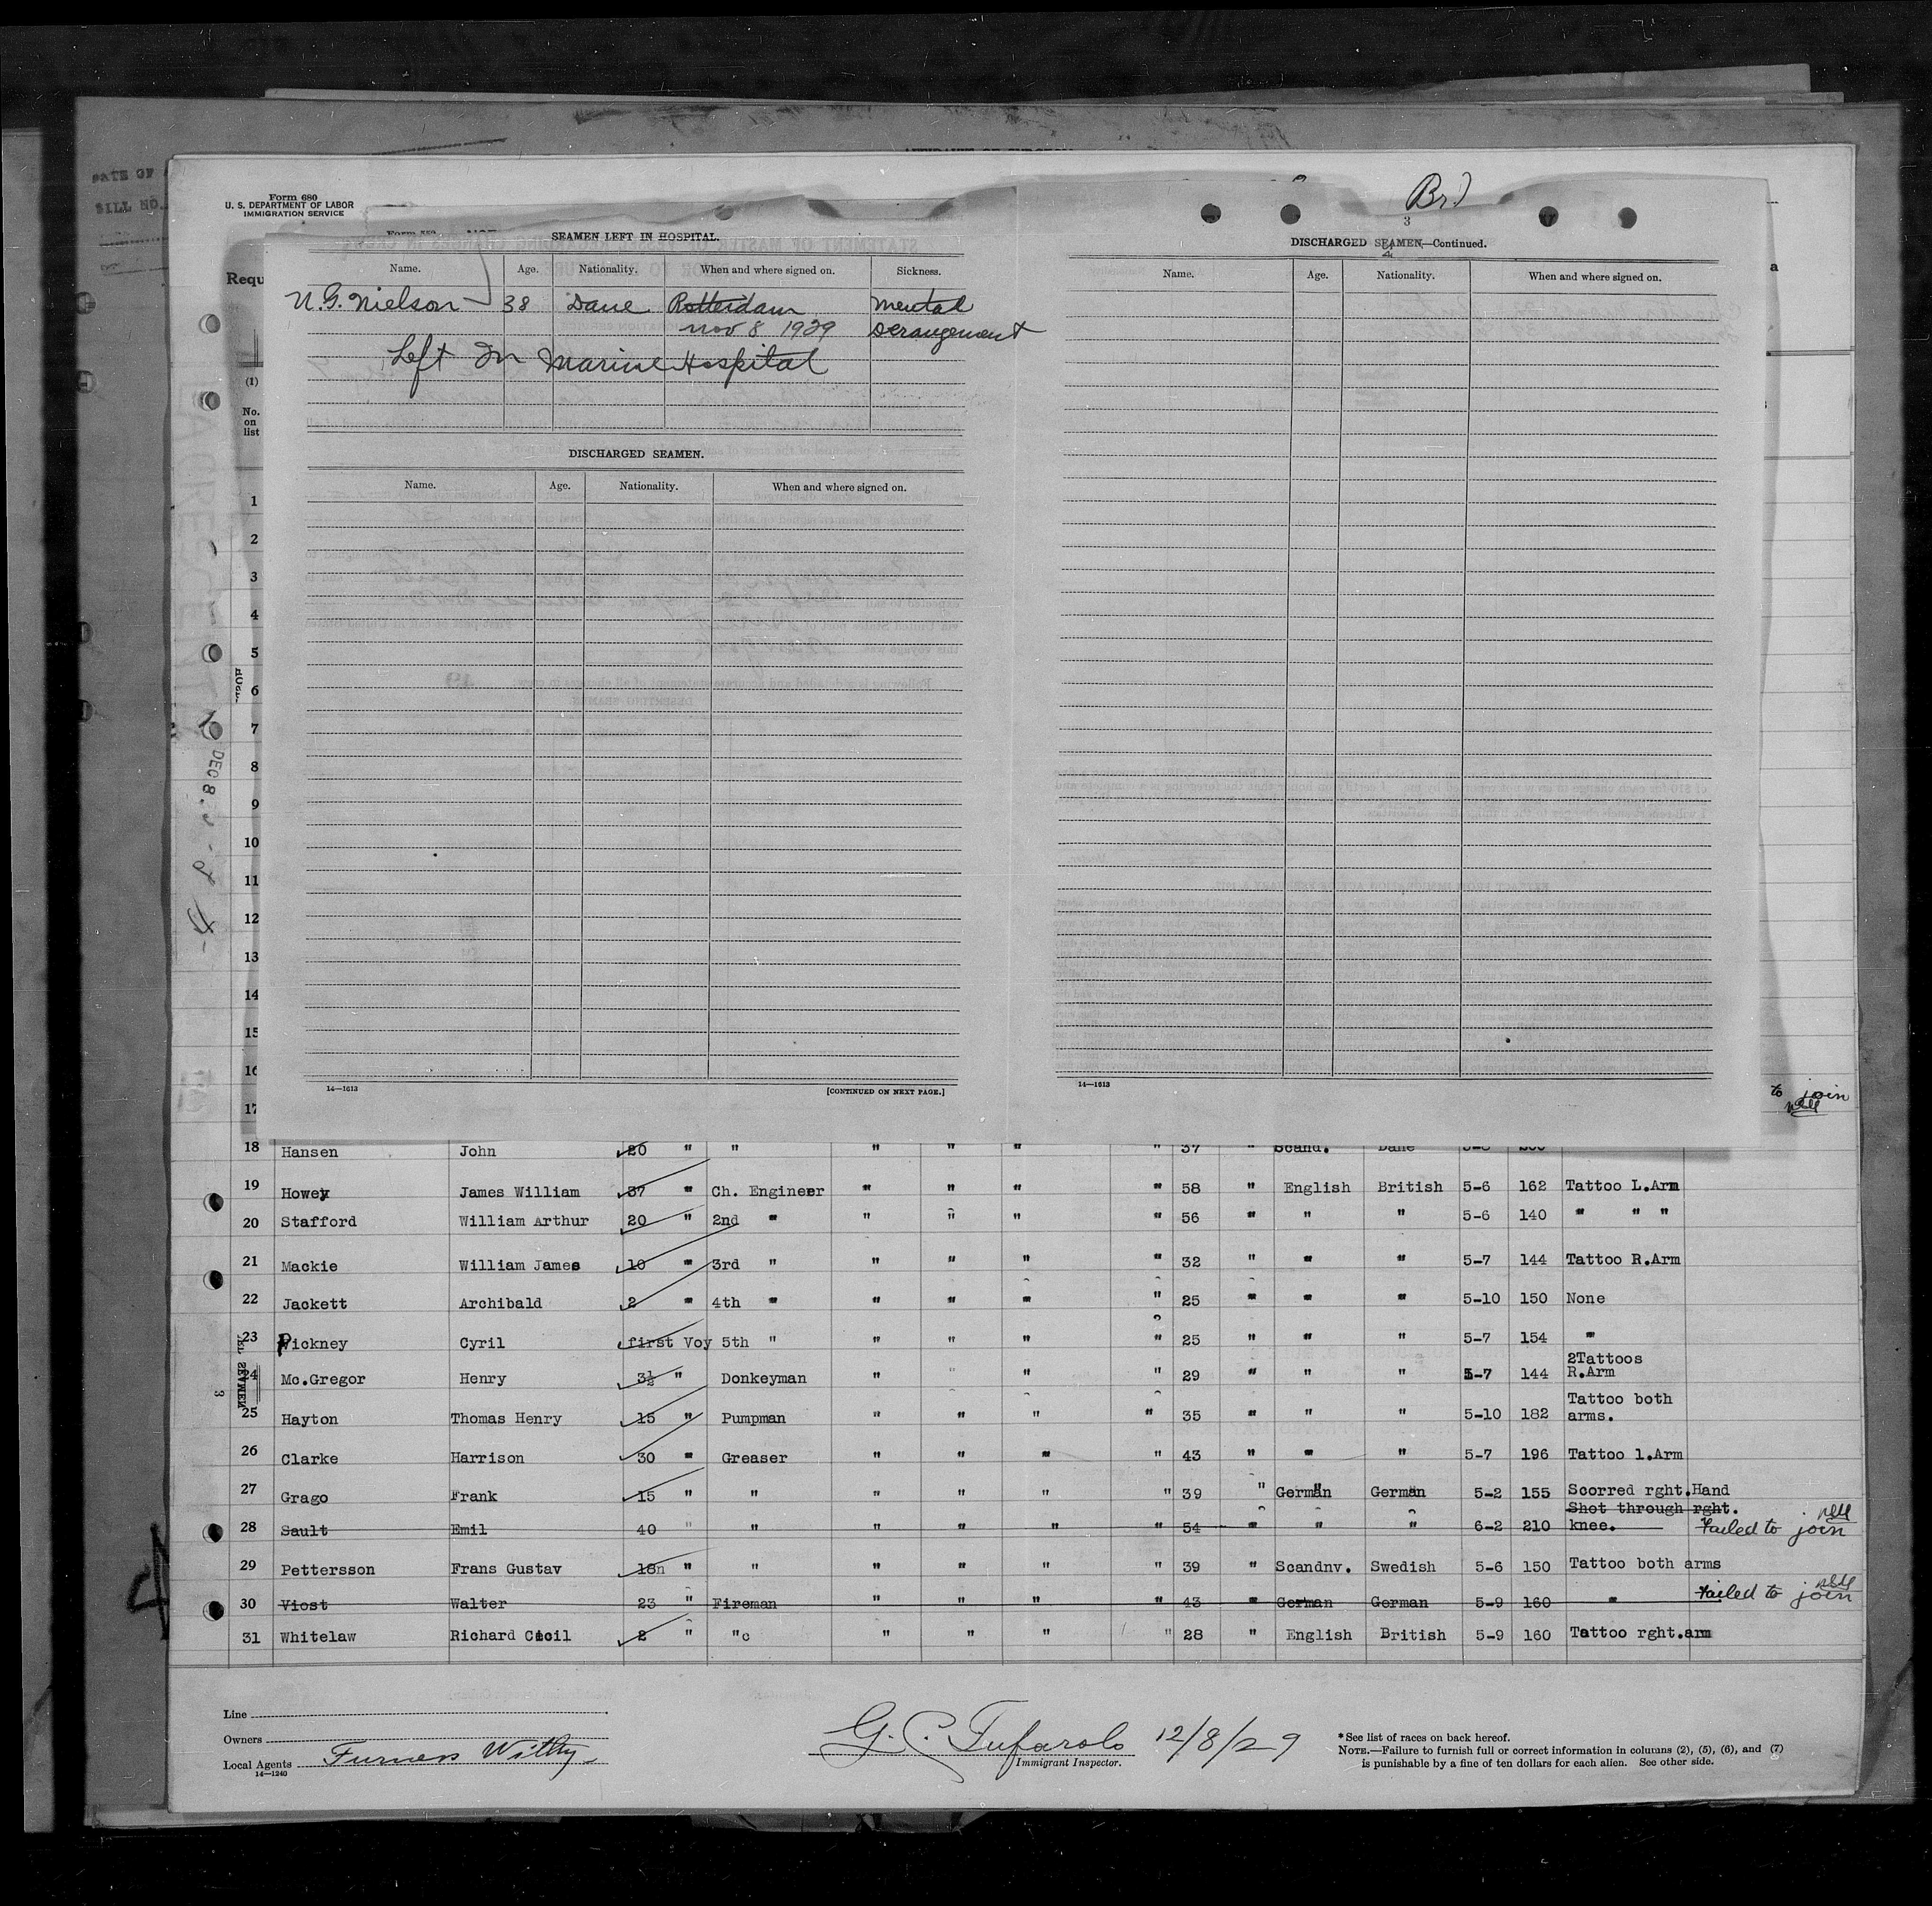 Form 680
U. S. DEPARTMENT OF LABOR
IMMIGRATION SERVICE
SEAMEN LEFT IN HOSPITAL.
Name. Age. Nationality. When and where signed on. Sickness.
N.G. Nielson 38 Dane Rotterdam Mental
Nov 8 1929 Derangement
Left In Marine Hospital
DISCHARGED SEAMEN.
Name. Age. Nationality. When and where signed on.
14—1613 [CONTINUED ON NEXT PAGE.]
Br.
3
DISCHARGED SEAMEN—Continued.
Name. Age. Nationality. When and where signed on.
14—1613
Requ
(1)
No.
on
list
1
2
3
4
5
6
7
8
9
10
11
12
13
14
15
16
17
to join
DEC 8
18 Hansen John 20 " " " " " " 37 " Scand. Dane
19 Howey James William 37 " Ch. Engineer " " " " 58 " English British 5-6 162 Tattoo L.Arm
20 Stafford William Arthur 20 " 2nd " " " " " 56 " " " 5-6 140 " " "
21 Mackie William James 10 " 3rd " " " " " 32 " " " 5-7 144 Tattoo R.Arm
22 Jackett Archibald 2 " 4th " " " " " 25 " " " 5-10 150 None
23 Pickney Cyril first Voy 5th " " " " " 25 " " " 5-7 154 "
24 Mc.Gregor Henry 3½ " Donkeyman " " " " 29 " " " 5-7 144 2Tattoos R.Arm
25 Hayton Thomas Henry 15 " Pumpman " " " " 35 " " " 5-10 182 Tattoo both arms.
26 Clarke Harrison 30 " Greaser " " " " 43 " " " 5-7 196 Tattoo l.Arm
27 Grago Frank 15 " " " " " " 39 " German German 5-2 155 Scorred rght.Hand
28 Sault Emil 40 " " " " " " 54 " " " 6-2 210 Shot through rght. knee. Failed to join
29 Pettersson Frans Gustav 18 " " " " " " 39 " Scandnv. Swedish 5-6 150 Tattoo both arms
30 Viost Walter 23 " Fireman " " " " 43 " German German 5-9 160 " Failed to join
31 Whitelaw Richard Cicil 2 " " " " " " 28 " English British 5-9 160 Tattoo rght.arm
Line
Owners
Local Agents Furness Withy
14—1240
G. C. Tufarolo 12/8/29
Immigrant Inspector.
*See list of races on back hereof.
NOTE.—Failure to furnish full or correct information in columns (2), (5), (6), and (7)
is punishable by a fine of ten dollars for each alien. See other side.